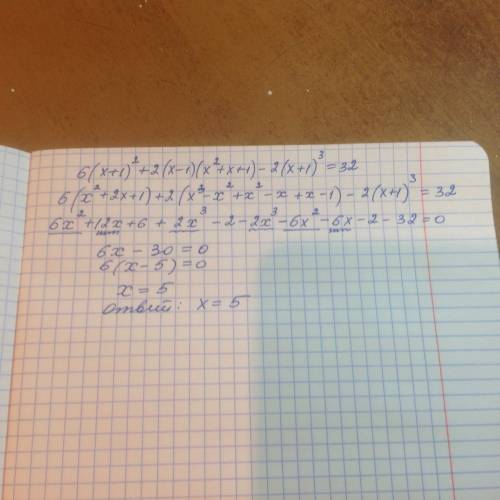 6(x+1)² + 2(x-1)(x²+x+1) - 2(x+1)³ = 32
6(x²+2x+1) + 2(x³-x²+x²-x+x-1) - 2(x+1)³ = 32
6x²+12x+6 + 2x³-2-2x³-6x²-6x-2-32=0
6x - 30 = 0
6(x-5)=0
x = 5
ответ: x = 5